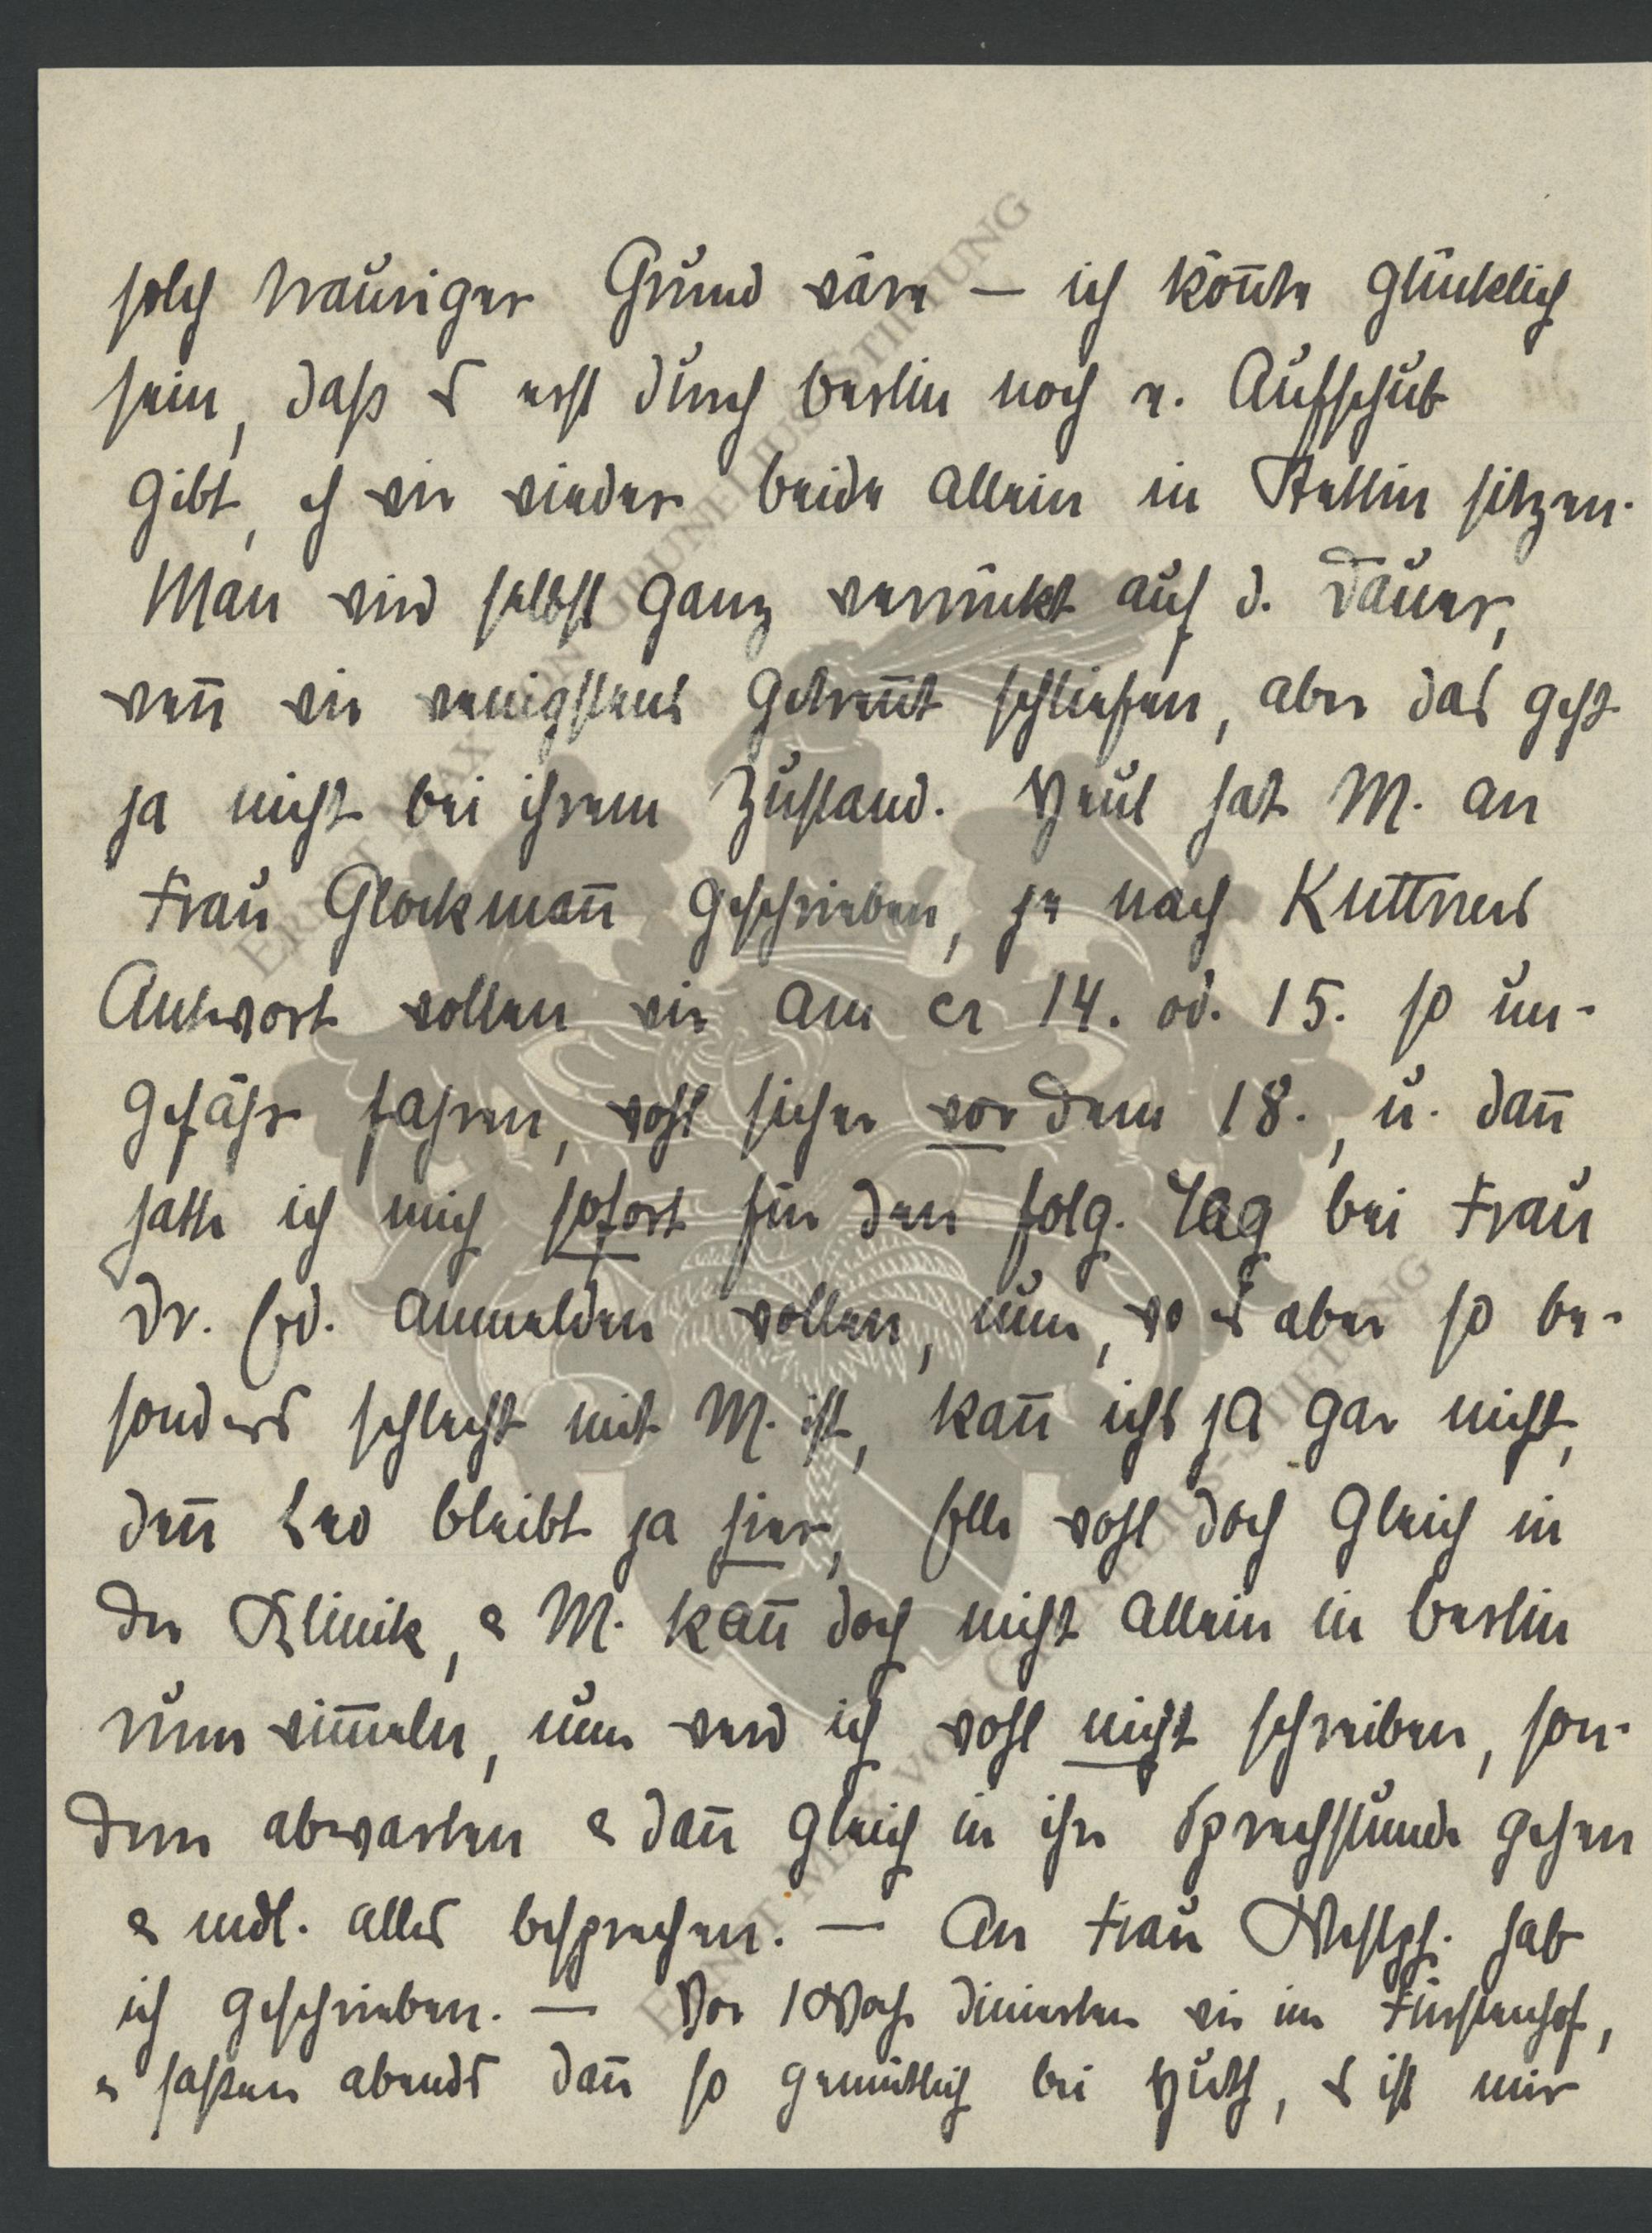 solch trauriger Grund wäre — ich kön̄te glücklich
sein, daß es erst durch Berlin noch e. Aufschub
gibt, eh wir wieder beide allein in Stettin sitzen.
Man wird selbst ganz verrückt auf d. Dauer,
wen̄ wir wenigstens getren̄t schliefen, aber das geht
ja nicht bei ihrem Zustand. Heut hat M. an
Frau Glockman̄ geschrieben, je nach Kuttners
Antwort wollen wir am ca 14. od. 15. so un-
gefähr fahren, wohl sicher vor dem 18., u. dan̄
hatte ich mich sofort für den folg. Tag bei Frau
Dr. anmelden wollen, nun, wo es aber so be-
sonders schlecht mit M. ist, kan̄ ichs ja gar nicht,
den̄ Leo bleibt ja hier, solle wohl doch gleich in
der Klinik, & M. kan̄ doch nicht allein in Berlin
rum wim̄eln, nun werd ich wohl nicht schreiben, son-
dern abwarten & dan̄ gleich in ihre Sprechstunde gehen
& mdl. alles besprechen. — An Frau Westph. hab
ich geschrieben. — Vor 1 Woche dinierten wir im Fürstenhof,
& saßen abends dan̄ so gemütlich bei Huth, es ist mir
ERNST MAX VON GRUNELIUS-STIFTUNG
ERNST MAX VON GRUNELIUS-STIFTUNG